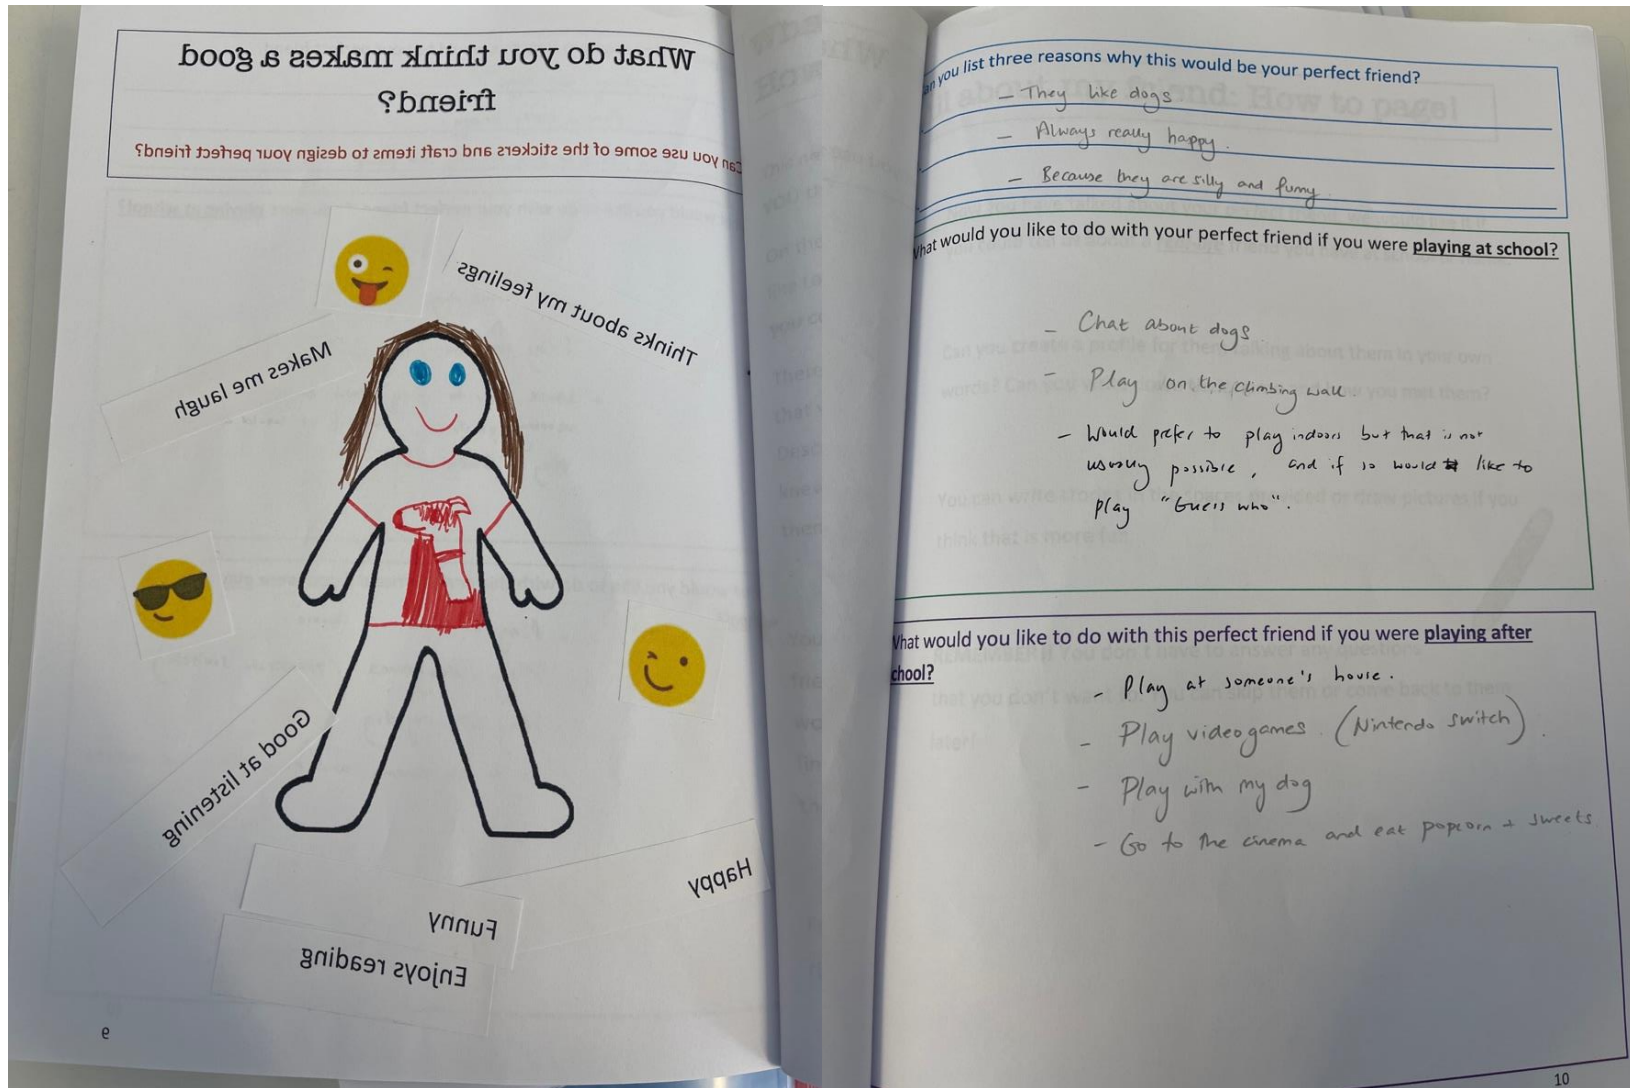 What do you think makes a good
friend?
Can you use some of the stickers and craft items to design your perfect friend?
Thinks about my feelings
Makes me laugh
Good at listening
Happy
Funny
Enjoys reading
9
an you list three reasons why this would be your perfect friend?
- They like dogs
- Always really happy.
- Because they are silly and funny.
What would you like to do with your perfect friend if you were playing at school?
- Chat about dogs.
- Play on the climbing wall.
- Would prefer to play indoors but that is not
usually possible, and if so would like to
play "Guess who".
What would you like to do with this perfect friend if you were playing after
chool?
- Play at someone's house.
- Play videogames. (Nintendo switch).
- Play with my dog
- Go to the cinema and eat popcorn + sweets
10